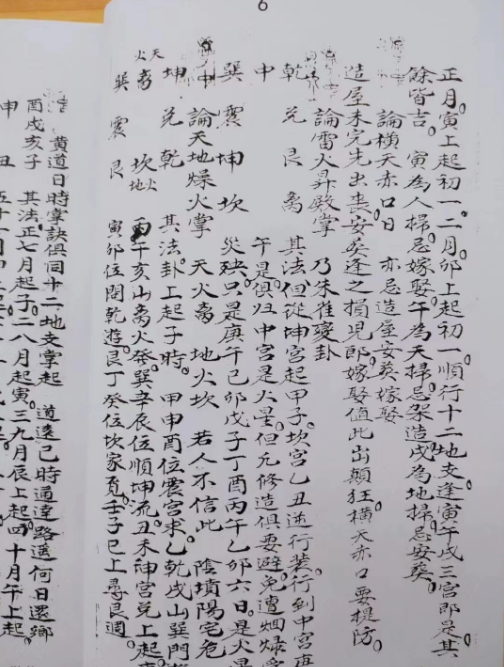 6
正月寅上起初一二月卯上起初一順行十二地支逢寅午戌三宮即是其
餘皆吉 寅為人掃忌嫁娶午為天掃忌架造戌為地掃忌安葬
論橫天赤口日 亦忌造屋安葬嫁娶
造屋未完先出丧安葬逢之損児郎嫁娶值此出顛狂橫天赤口要提防
論雷火昇殿掌 乃朱雀变卦
乾 兌 艮 离 其法但從坤宮起甲子坎宮乙丑逆行裝行到中宮再
中 午是俱归中宮是火星但凡修造俱要避免遭烟
巽 震 坤 坎 災殃只是庚午己卯戊子丁酉丙午乙卯六日是火星
中 論天地燥火掌 天火离 地火坎 若人不信此 陰墳陽宅危
坤 兌 乾 其法卦上起子時 甲申酉位震宮求乙乾戌山巽門
天火离 坎地火 丙午亥山离火癸巽辛辰位順坤流丑未神宮兌上起
巽 震 艮 寅卯位閏乾遊艮丁癸位坎家覓壬子巳上尋艮週
黃道日時掌訣俱同十二地支掌起 道遠己時通達路遥何日還鄉
酉戌亥子 其法正七月起子二八月起寅三九月辰上起四十月午上起
申 丑 五十一月